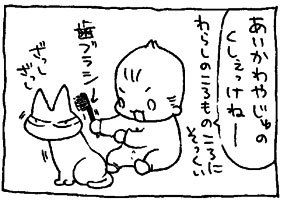 あいかわらずの
くしえっけねー
わらしのころもの
ころに
そっくい
歯ブラシ
ざっし
ざっし